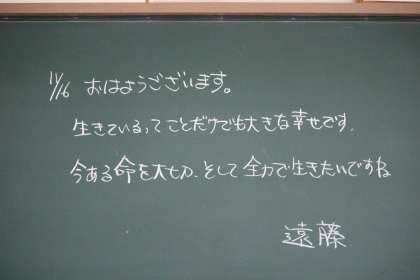 11/16 おはようございます。
生きているってことだけでも大きな幸せです.
今ある命を大切.そして全力で生きたいですね
遠藤